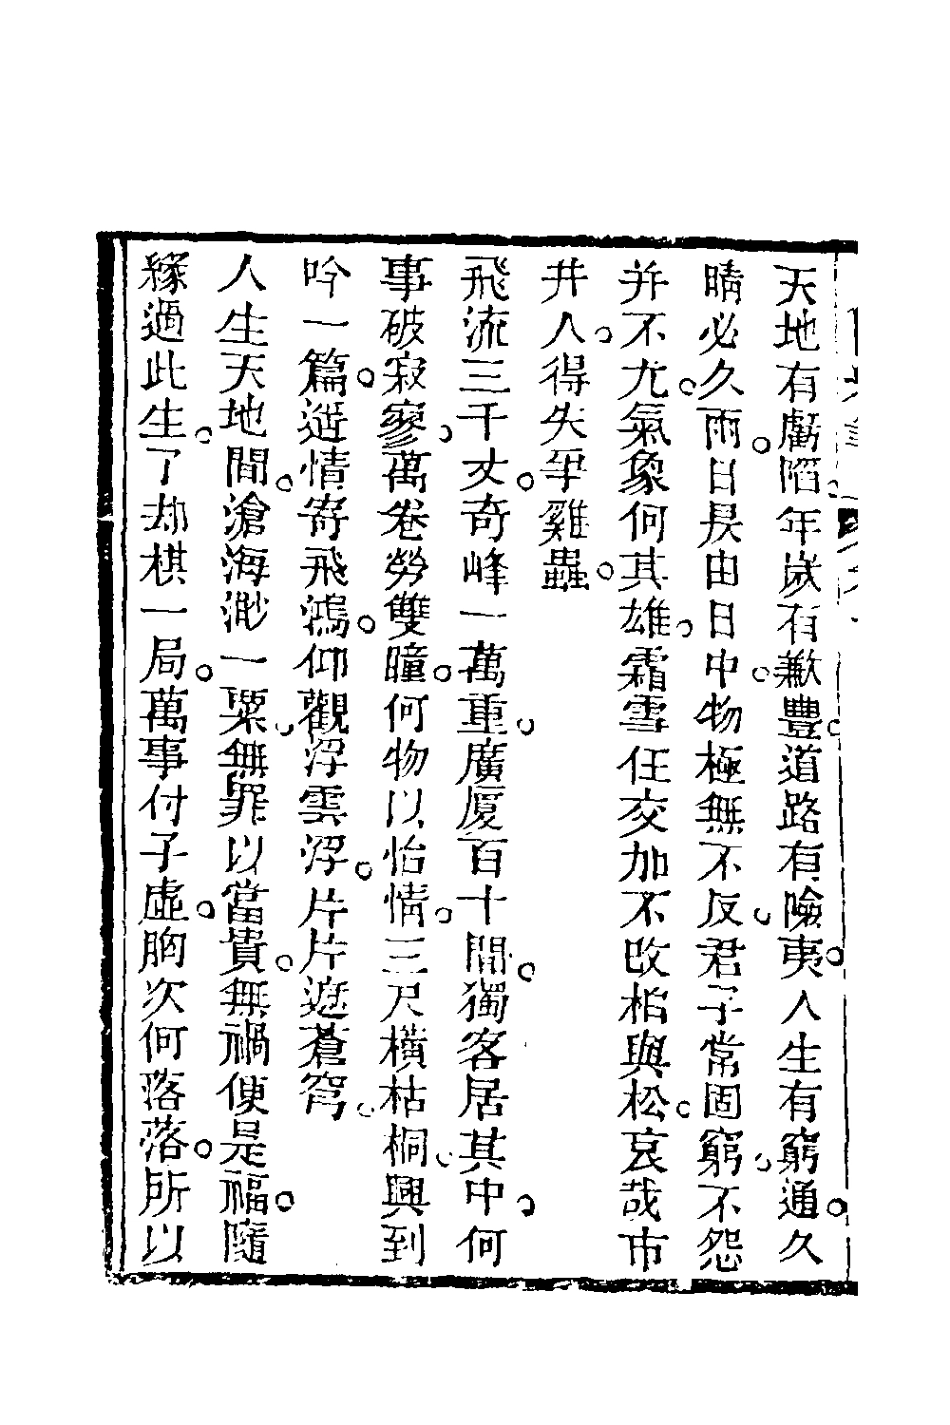 天地有虧陷年歲有歉豐道路有險夷人生有窮通久
晴必久雨日昃由日中物極無不反君子常固窮不怨
并不尤氣象何其雄霜雪任交加不改柏與松哀哉市
井人得失爭雞蟲
飛流三千丈奇峰一萬重廣厦百十間獨客居其中何
事破寂寥萬卷勞雙瞳何物以怡情三尺橫枯桐興到
吟一篇遥情寄飛鴻仰觀浮雲浮片片遮蒼穹
人生天地間滄海渺一粟無罪以當貴無禍便是福隨
緣過此生了却棋一局萬事付子虛胸次何落落所以